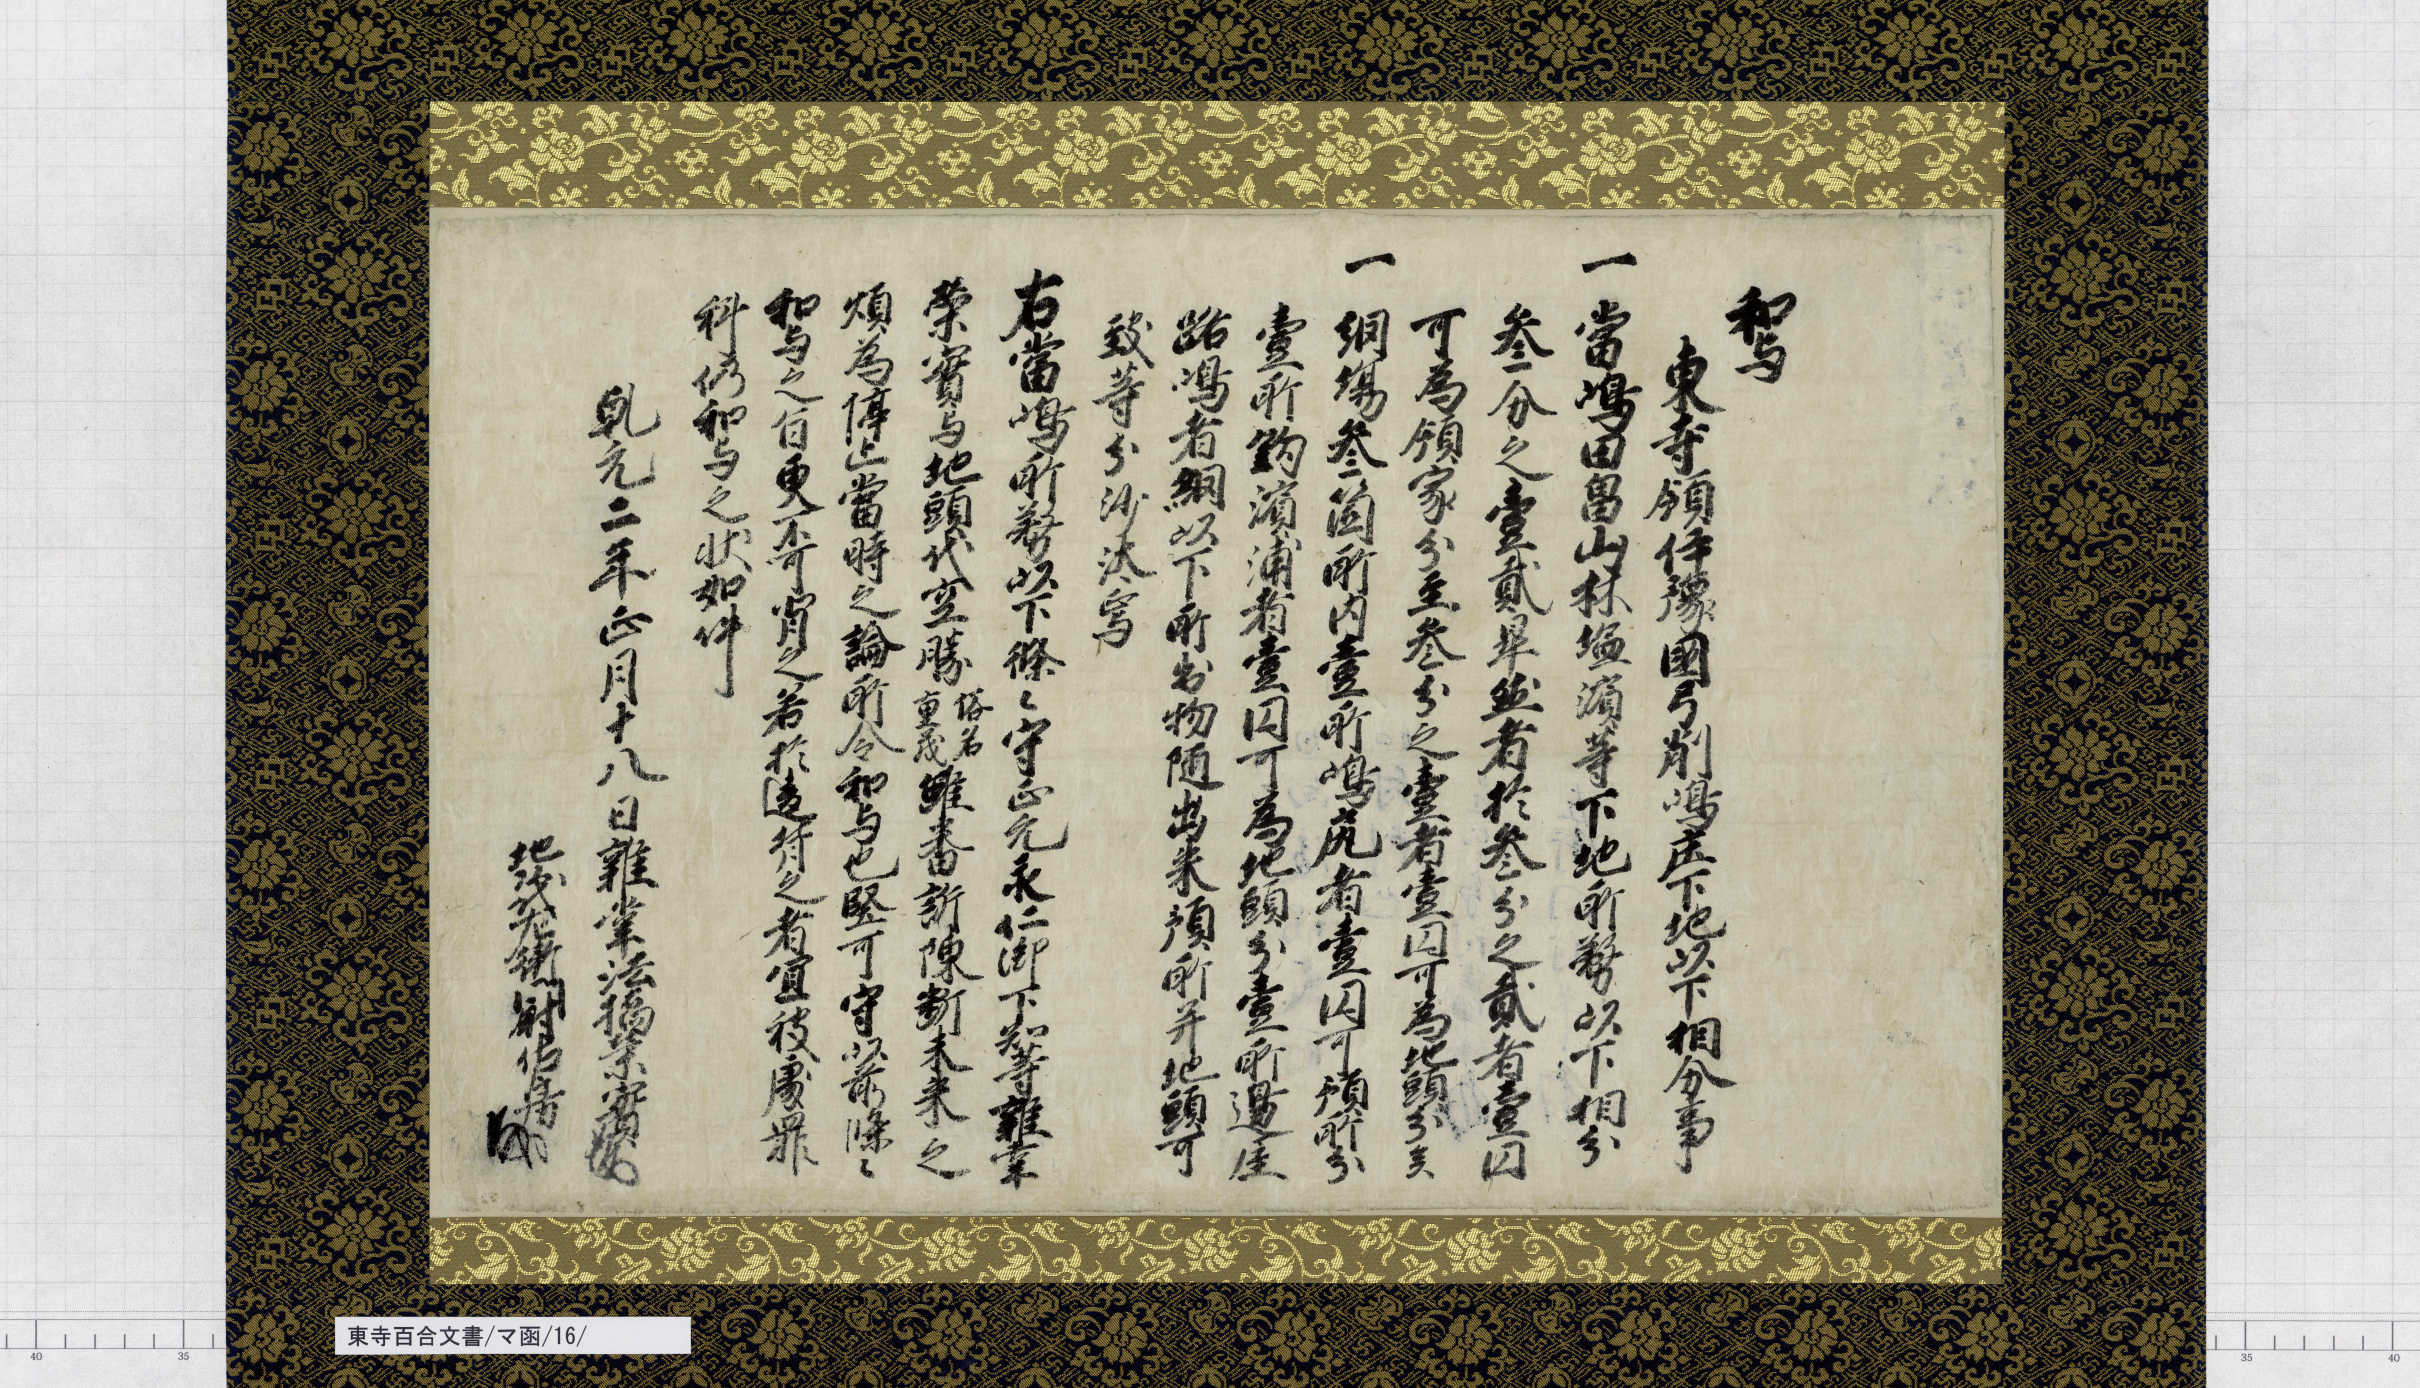 和与
東寺領伊豫國弓削嶋庄下地以下相分事
一 當嶋田畠山林塩濱等下地所務以下相分
叁分之壹貳畢然者於叁分之貳者壹円
可為領家分至叁分之壹者壹円可為地頭分矣
一 網場叁箇所内壹所嶋尻者壹円可預所分
壹所釣濱浦者壹円可為地頭分壹所邊屋
路嶋者網以下所出物随出来預所并地頭可
致等分沙汰焉
右當嶋所務以下條々守正元永仁御下知等雜掌
榮實与地頭代空勝俗名重茂雖番訴陳断未来之
煩為停止當時之論所令和与也堅可守以前條々
和与之旨更不可有之若於違背之者宜被處罪
科仍和与之状如件
乾元二年正月十八日雜掌法橋榮實
地頭代左衛門尉佐房
東寺百合文書/マ函/16/
40
35
35
40